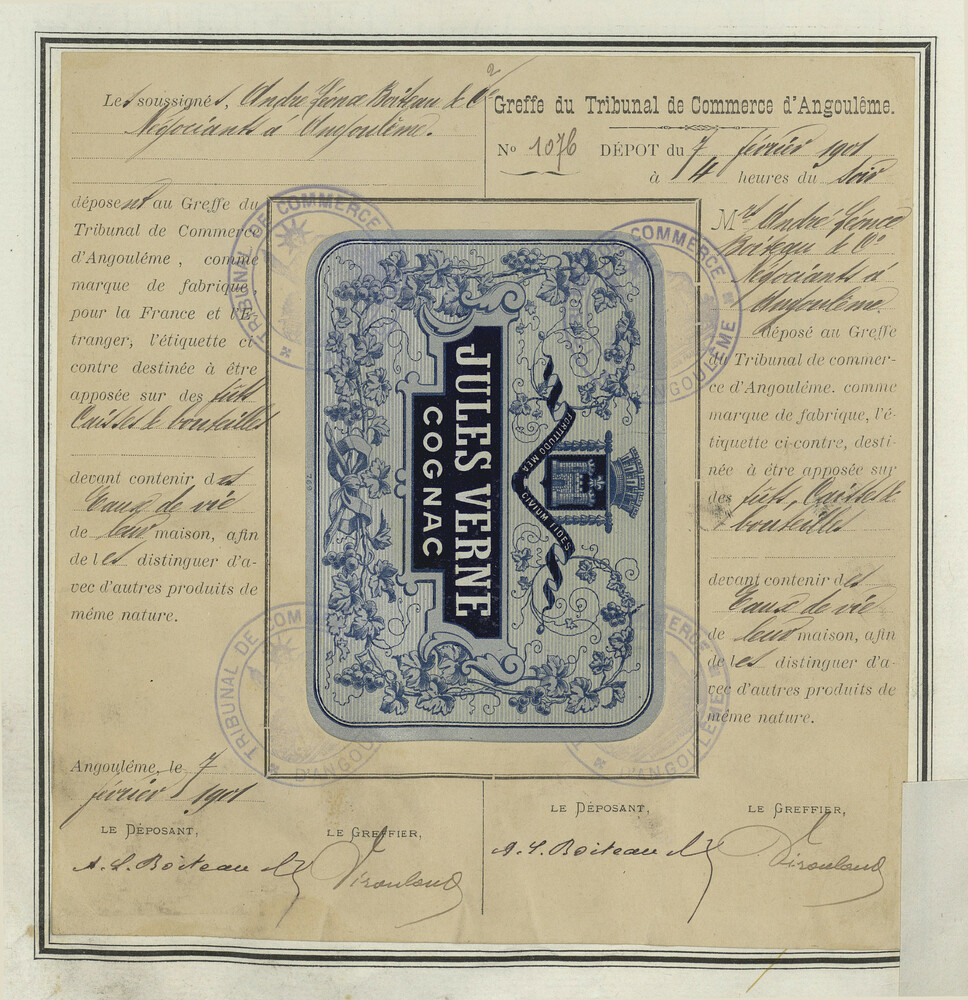 Les soussignés, André Léonce Boiteau & Cie
Négociants à Angoulême.
déposent au Greffe du
Tribunal de Commerce
d'Angoulême, comme
marque de fabrique,
pour la France et l'É-
tranger, l'étiquette ci-
contre destinée à être
apposée sur des fûts
Caisses & bouteilles
devant contenir des
Eaux de vie
de leur maison, afin
de les distinguer d'a-
vec d'autres produits de
même nature.
Angoulême, le 7
février 1901
LE DÉPOSANT,
LE GREFFIER,
A. L. Boiteau &
Greffe du Tribunal de Commerce d'Angoulême.
No 1076 DÉPOT du 7 février 1901
à 4 heures du soir
TRIBUNAL DE COMMERCE
D'ANGOULÊME
JULES VERNE
COGNAC
FORTITUDO MEA
CIVIUM FIDES
TRIBUNAL DE COMMERCE
D'ANGOULÊME
COMMERCE
D'ANGOULÊME
COMMERCE
D'ANGOULÊME
Mrs André Léonce
Boiteau & Cie
Négociants à
Angoulême.
déposé au Greffe
du Tribunal de commer-
ce d'Angoulême. comme
marque de fabrique, l'é-
tiquette ci-contre, desti-
née à être apposée sur
des fûts, Caisses &
bouteilles
devant contenir des
Eaux de vie
de leur maison, afin
de les distinguer d'a-
vec d'autres produits de
même nature.
LE DÉPOSANT,
LE GREFFIER,
A. L. Boiteau &